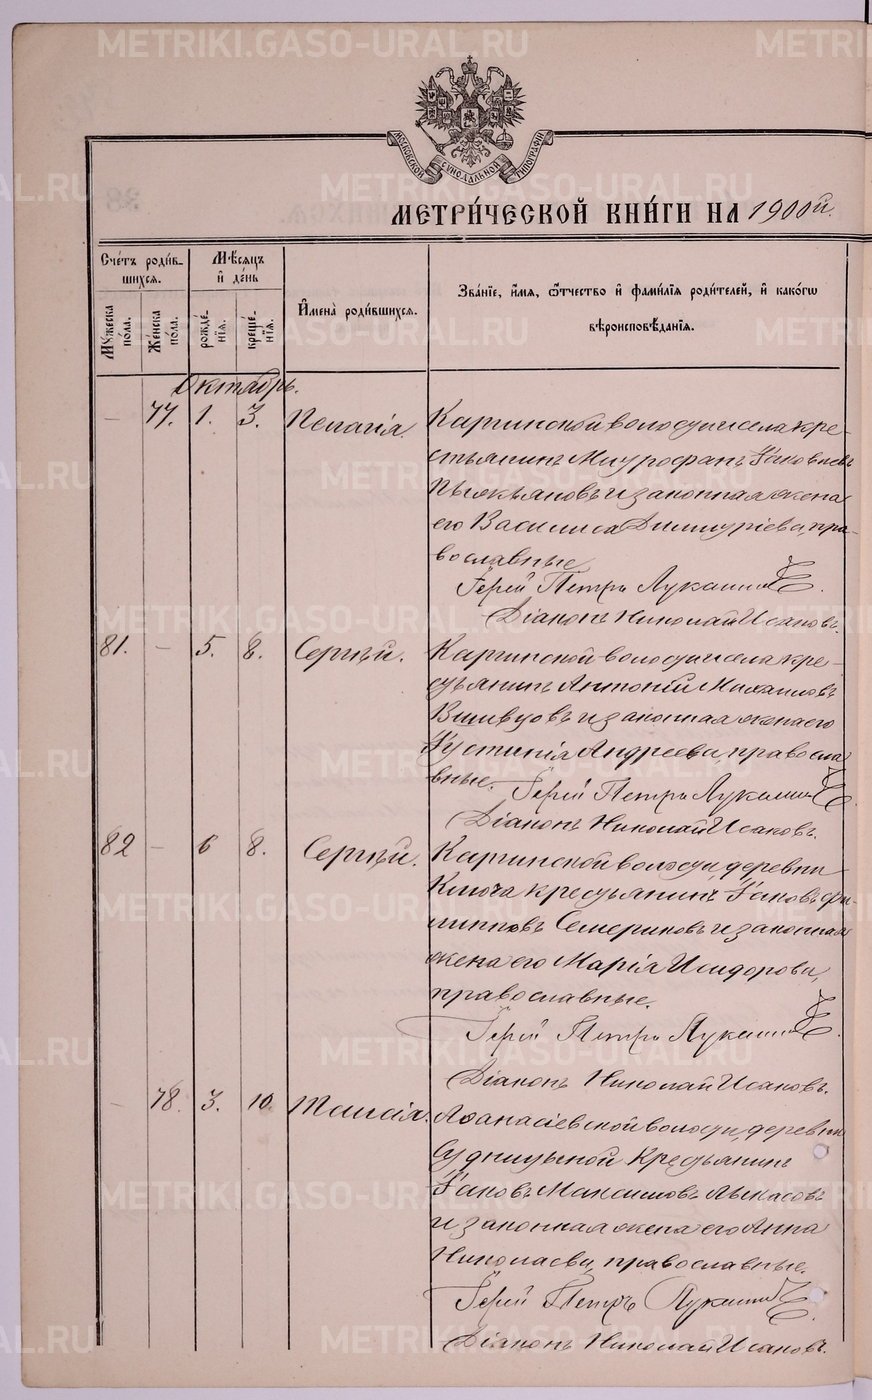 METRIKI.GASO-URAL.RU
МОСКОВСКОЙ СѴНОДАЛЬНОЙ ТИПОГРАФІИ
МЕТРИ́ЧЕСКОЙ КНИ́ГИ НА 1900й.
Сче́тъ роди́вшихся.
Му́жеска по́ла.
Же́нска по́ла.
Мѣ́сяцъ и҆ де́нь
рожде́нїѧ.
креще́нїѧ.
И҆мена̀ роди́вшихся.
Зва́нїе, и҆́мя, ѻ҆́тчество и҆ фами́лїя роди́телей, и҆ како́гѡ
вѣроисповѣ́данїя.
Октябрь.
— 77. 1. 3. Пелагія. Каргинской волости и села кре-
стьянинъ Митрофанъ Іаковлевъ
и законная жена
его Василиса Димитріева, пра-
вославные
Іерей Петръ Лукании
Діаконъ Николай Исаковъ.
81. — 5. 8. Сергѣй. Каргинской волости и села кре-
стьянинъ Антоній Михаиловъ
и законная жена его
Іустинія Андреева, правосла
вные. Іерей Петръ
Діаконъ Николай Исаковъ.
82 — 6 8. Сергѣй. Каргинской волости, деревни
Ключа крестьянинъ Іаковъ Фи-
липповъ Семериковъ и законная
жена его Марія Исидорова,
православные.
Іерей Петръ
Діаконъ Николай Исаковъ.
— 78. 3. 10. Таисія. Аѳанасіевской волости, деревни
крестьянинъ
Іаковъ Максимовъ
и законная жена его Анна
Николаева, православные.
Іерей Петръ
Діаконъ Николай Исаковъ.